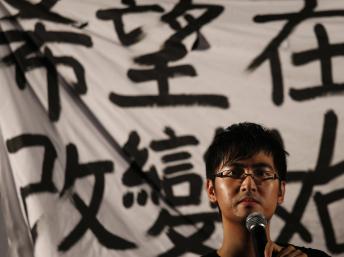 希望在
改變始